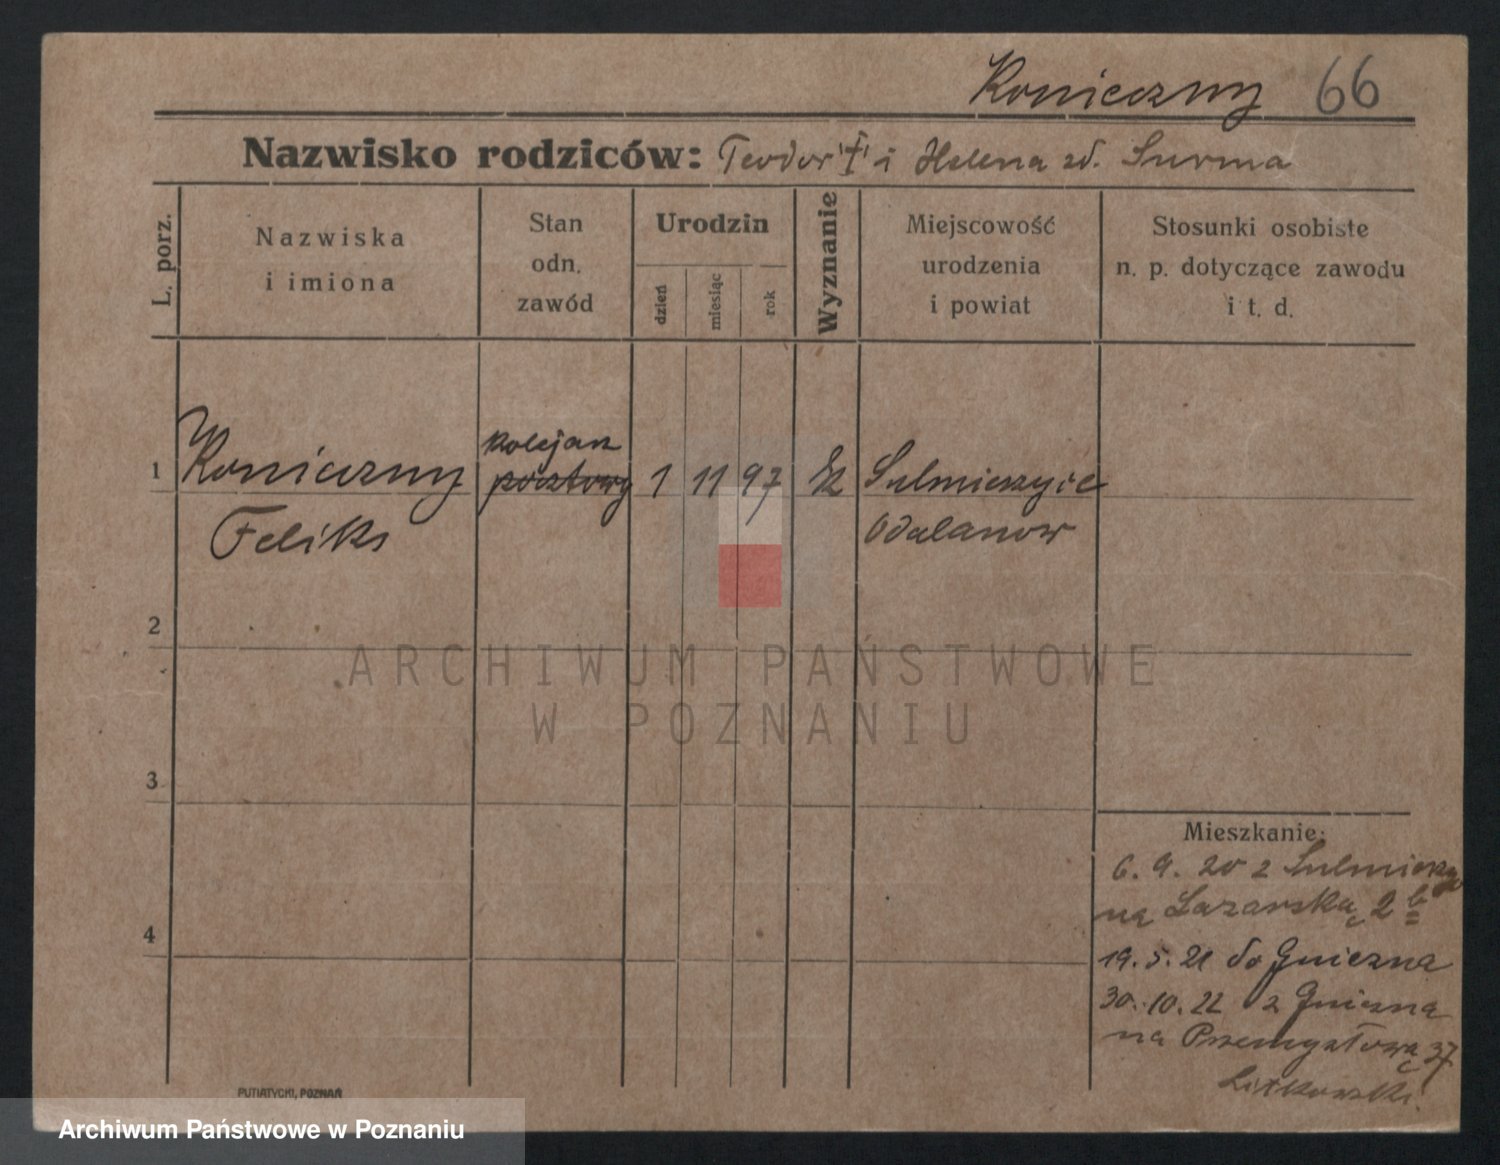 Konieczny 66
Nazwisko rodziców: Teodor "†" i Helena zd. Surma
L. porz.
Nazwiska
i imiona
Stan
odn.
zawód
Urodzin
dzień
miesiąc
rok
Wyznanie
Miejscowość
urodzenia
i powiat
Stosunki osobiste
n. p. dotyczące zawodu
i t. d.
kolejarz
1 Konieczny pocztowy 1 11 97 rk Sulmierzyce
Feliks Odalanow
2
ARCHIWUM PAŃSTWOWE
W POZNANIU
3
Mieszkanie:
6. 9. 20 z Sulmierzyc
na Łazarską 2 b
4
19. 5. 21 do Gniezna
30. 10. 22 z Gniezna
na Przemysłową 37
PUTIATYCKI, POZNAŃ
Archiwum Państwowe w Poznaniu